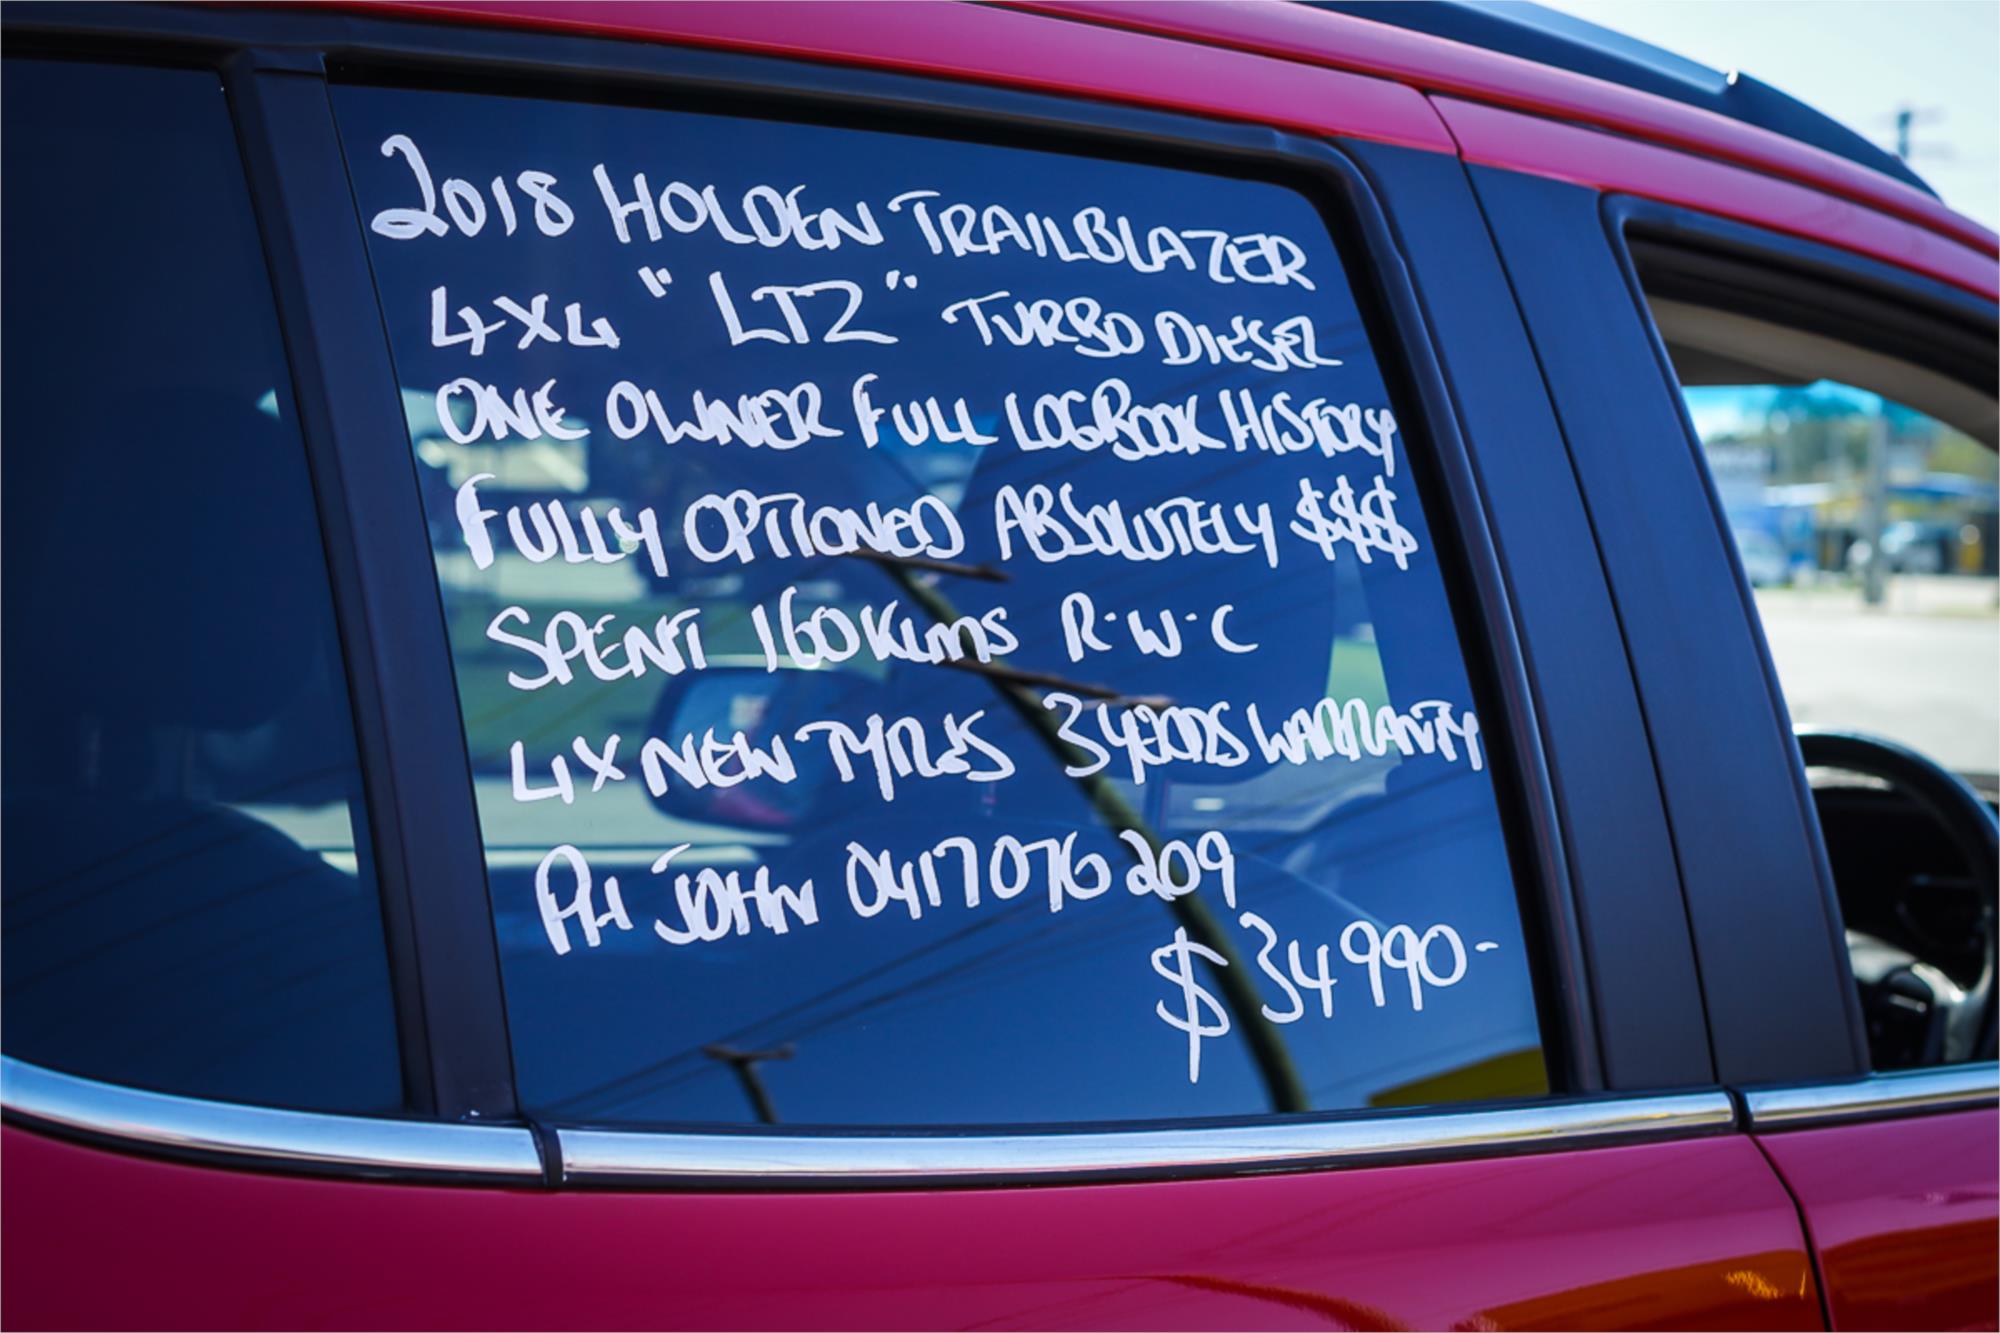 2018 HOLDEN TRAILBLAZER
4X4 "LTZ" TURBO DIESEL
ONE OWNER FULL LOGBOOK HISTORY
FULLY OPTIONED ABSOLUTELY $$$
SPENT 160KLMS R·W·C
4X NEW TYRES 3 YEARS WARRANTY
PH JOHN 0417 076 209
$34990-